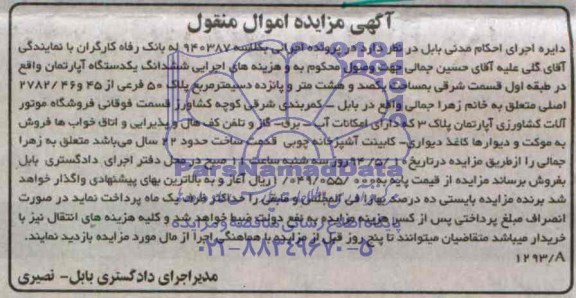 آگهی مزایده اموال منقول
دایره اجرای احکام مدنی بابل در نظر دارد در پرونده اجرائی بکلاسه ۹۴۰۳۸۷ له بانک رفاه کارگران با نمایندگی
آقای گلی علیه آقای حسین جمالی جهت وصول محکوم به و هزینه های اجرایی ششدانگ یکدستگاه آپارتمان واقع
در طبقه اول قسمت شرقی بمساحت یکصد و هشت متر و پانزده دسیمترمربع پلاک ۵۰ فرعی از ۴۵ و ۴۶/ ۲۷۸۲
اصلی متعلق به خانم زهرا جمالی واقع در بابل - کمربندی شرقی کوچه کشاورز قسمت فوقانی فروشگاه موتور
آلات کشاورزی آپارتمان پلاک ۳ که دارای امکانات آب - برق - گاز و تلفن کف هال و پذیرایی و اتاق خواب ها فروش
به موکت و دیوارها کاغذ دیواری - کابینت آشپزخانه چوبی قدمت ساخت حدود ۲۲ سال می‌باشد متعلق به زهرا
جمالی را ازطریق مزایده درتاریخ ۹۴/۵/۱۰ روز سه شنبه ساعت ۱۰ صبح در محل دفتر اجرای دادگستری بابل
بفروش برساند مزایده از قیمت پایه به ریال آغاز و به بالاترین بهای پیشنهادی واگذار خواهد
شد برنده مزایده بایستی ده درصد بها را فی المجلس و مابقی را حداکثر ظرف یک ماه پرداخت نماید در صورت
انصراف مبلغ پرداختی پس از کسر هزینه مزایده به نفع دولت ضبط خواهد شد و کلیه هزینه های انتقال نیز با
خریدار میباشد متقاضیان میتوانند تا پنج روز قبل از مزایده با هماهنگی اجرا از مال مورد مزایده بازدید نمایند.
۱۲۹۳/A
مدیراجرای دادگستری بابل - نصیری
ParsNamadData
پایگاه اطلاع رسانی مناقصه و مزایده
۰۲۱-۸۸۳۴۹۶۷۰-۵